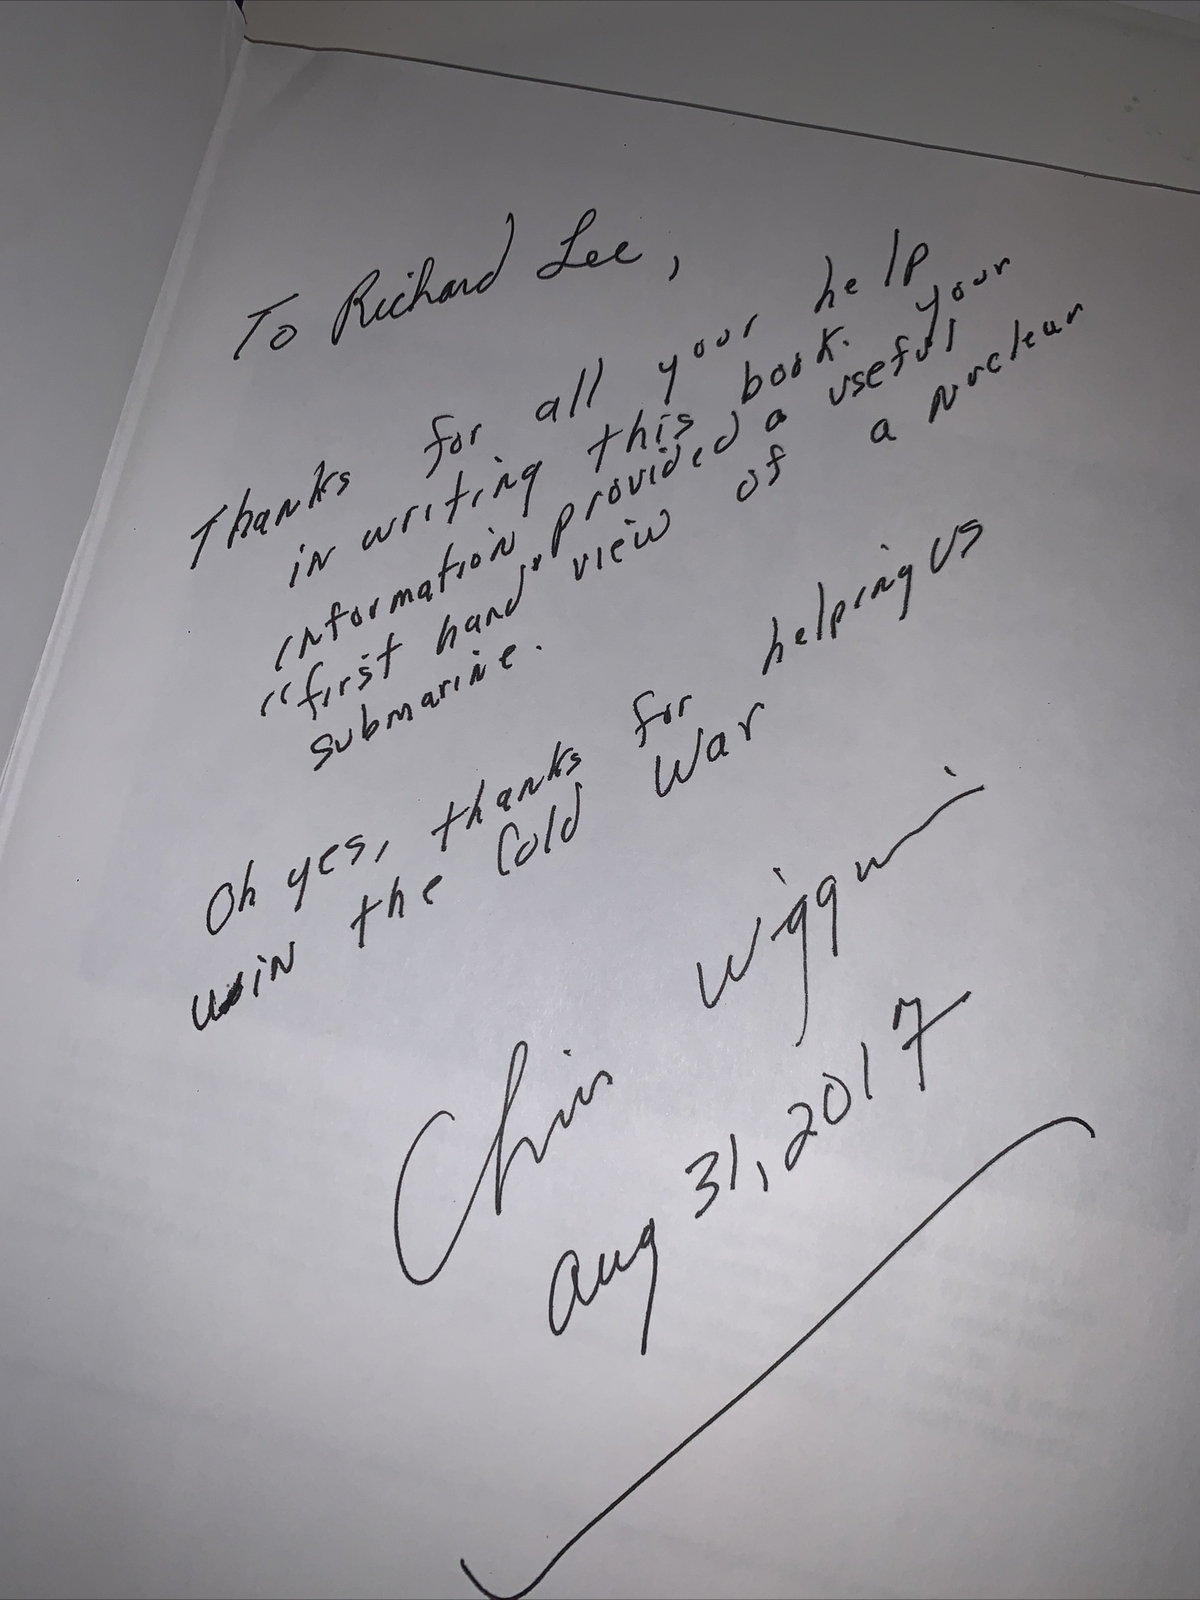 To Richard Lee,
Thanks for all your help
in writing this book. your
information provided a useful
"first hand" view of a nuclear
submarine.
Oh yes, thanks for helping us
win the Cold War
Chris Wiggins
Aug 31, 2017